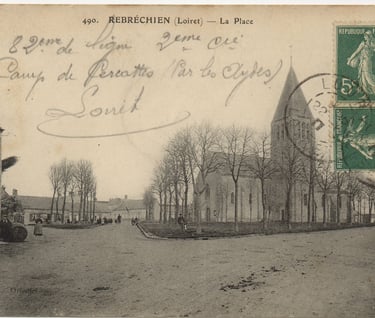 490. REBRÉCHIEN (Loiret) — La Place
82eme de ligne 2eme Cie
Camp de Cercottes (Par les Aydes)
Loiret
5